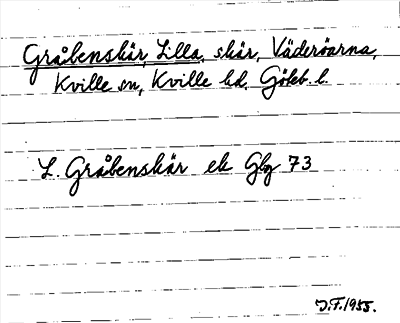 Gråbenskär, Lilla, skär, Väderöarna,
Kville sn, Kville hd, Göteb. l.
L. Gråbenskär ek Gbg 73
J.F. 1955.